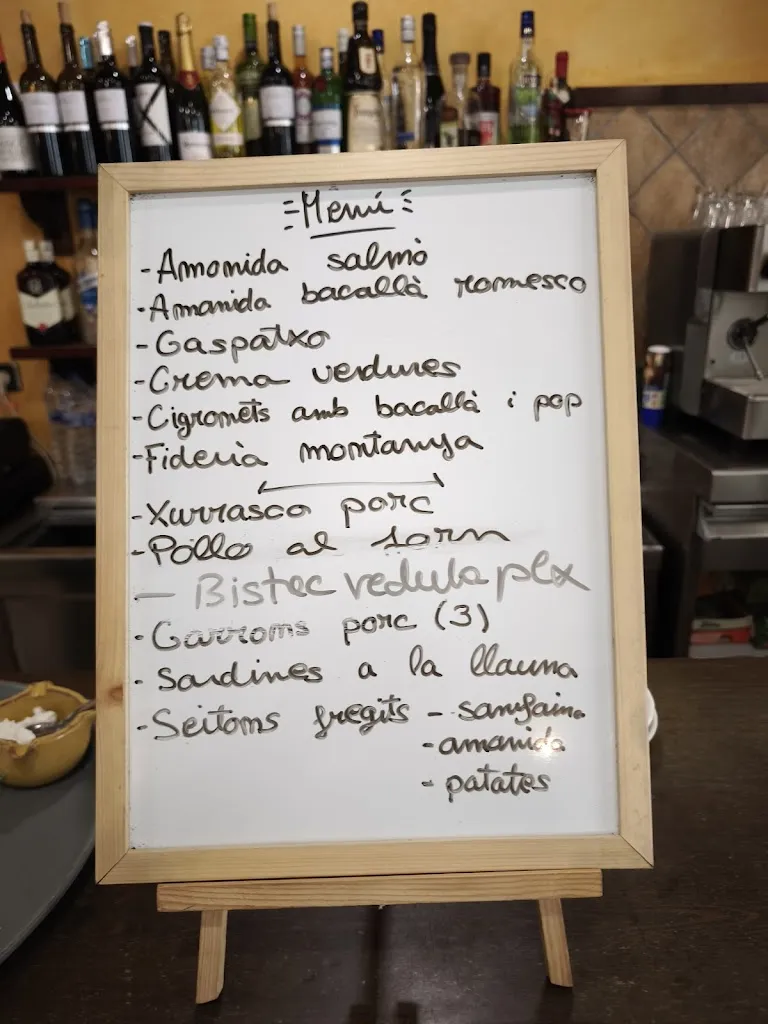 Menú
- Amanida salmó
- Amanida bacallà romesco
- Gaspatxo
- Crema verdures
- Cigronets amb bacallà i pop
- Fideuà montanya
- Xurrasco porc
- Pollo al forn
- Bistec vedella plx
- Garrons porc (3)
- Sardines a la llauna
- Seitons fregits - samfaina
- amanida
- patates